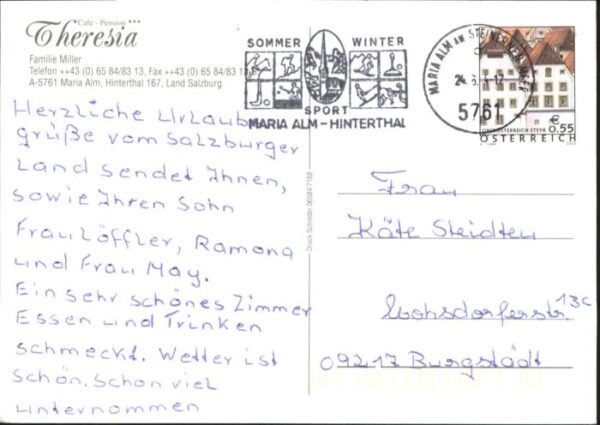 Cafe - Pension ***
Theresia
Familie Miller
Telefon ++43 (0) 65 84/83 13, Fax ++43 (0) 65 84/83 13
A-5761 Maria Alm, Hinterthal 167, Land Salzburg
Herzliche Urlaub
grüße vom Salzburger
Land sendet Ihnen,
sowie Ihren Sohn
Frau Löffler, Ramona
und Frau May.
Ein sehr schönes Zimmer
Essen und Trinken
schmeckt. Wetter ist
schön. Schon viel
unternommen
SOMMER WINTER
SPORT
MARIA ALM - HINTERTHAL
MARIA ALM AM STEINERNEN MEER
5761
€ 0,55
ÖSTERREICH
Druck Schreder 06584/7168
Frau
Käte Steidten
Mohsdorferstr. 13c
09217 Burgstädt